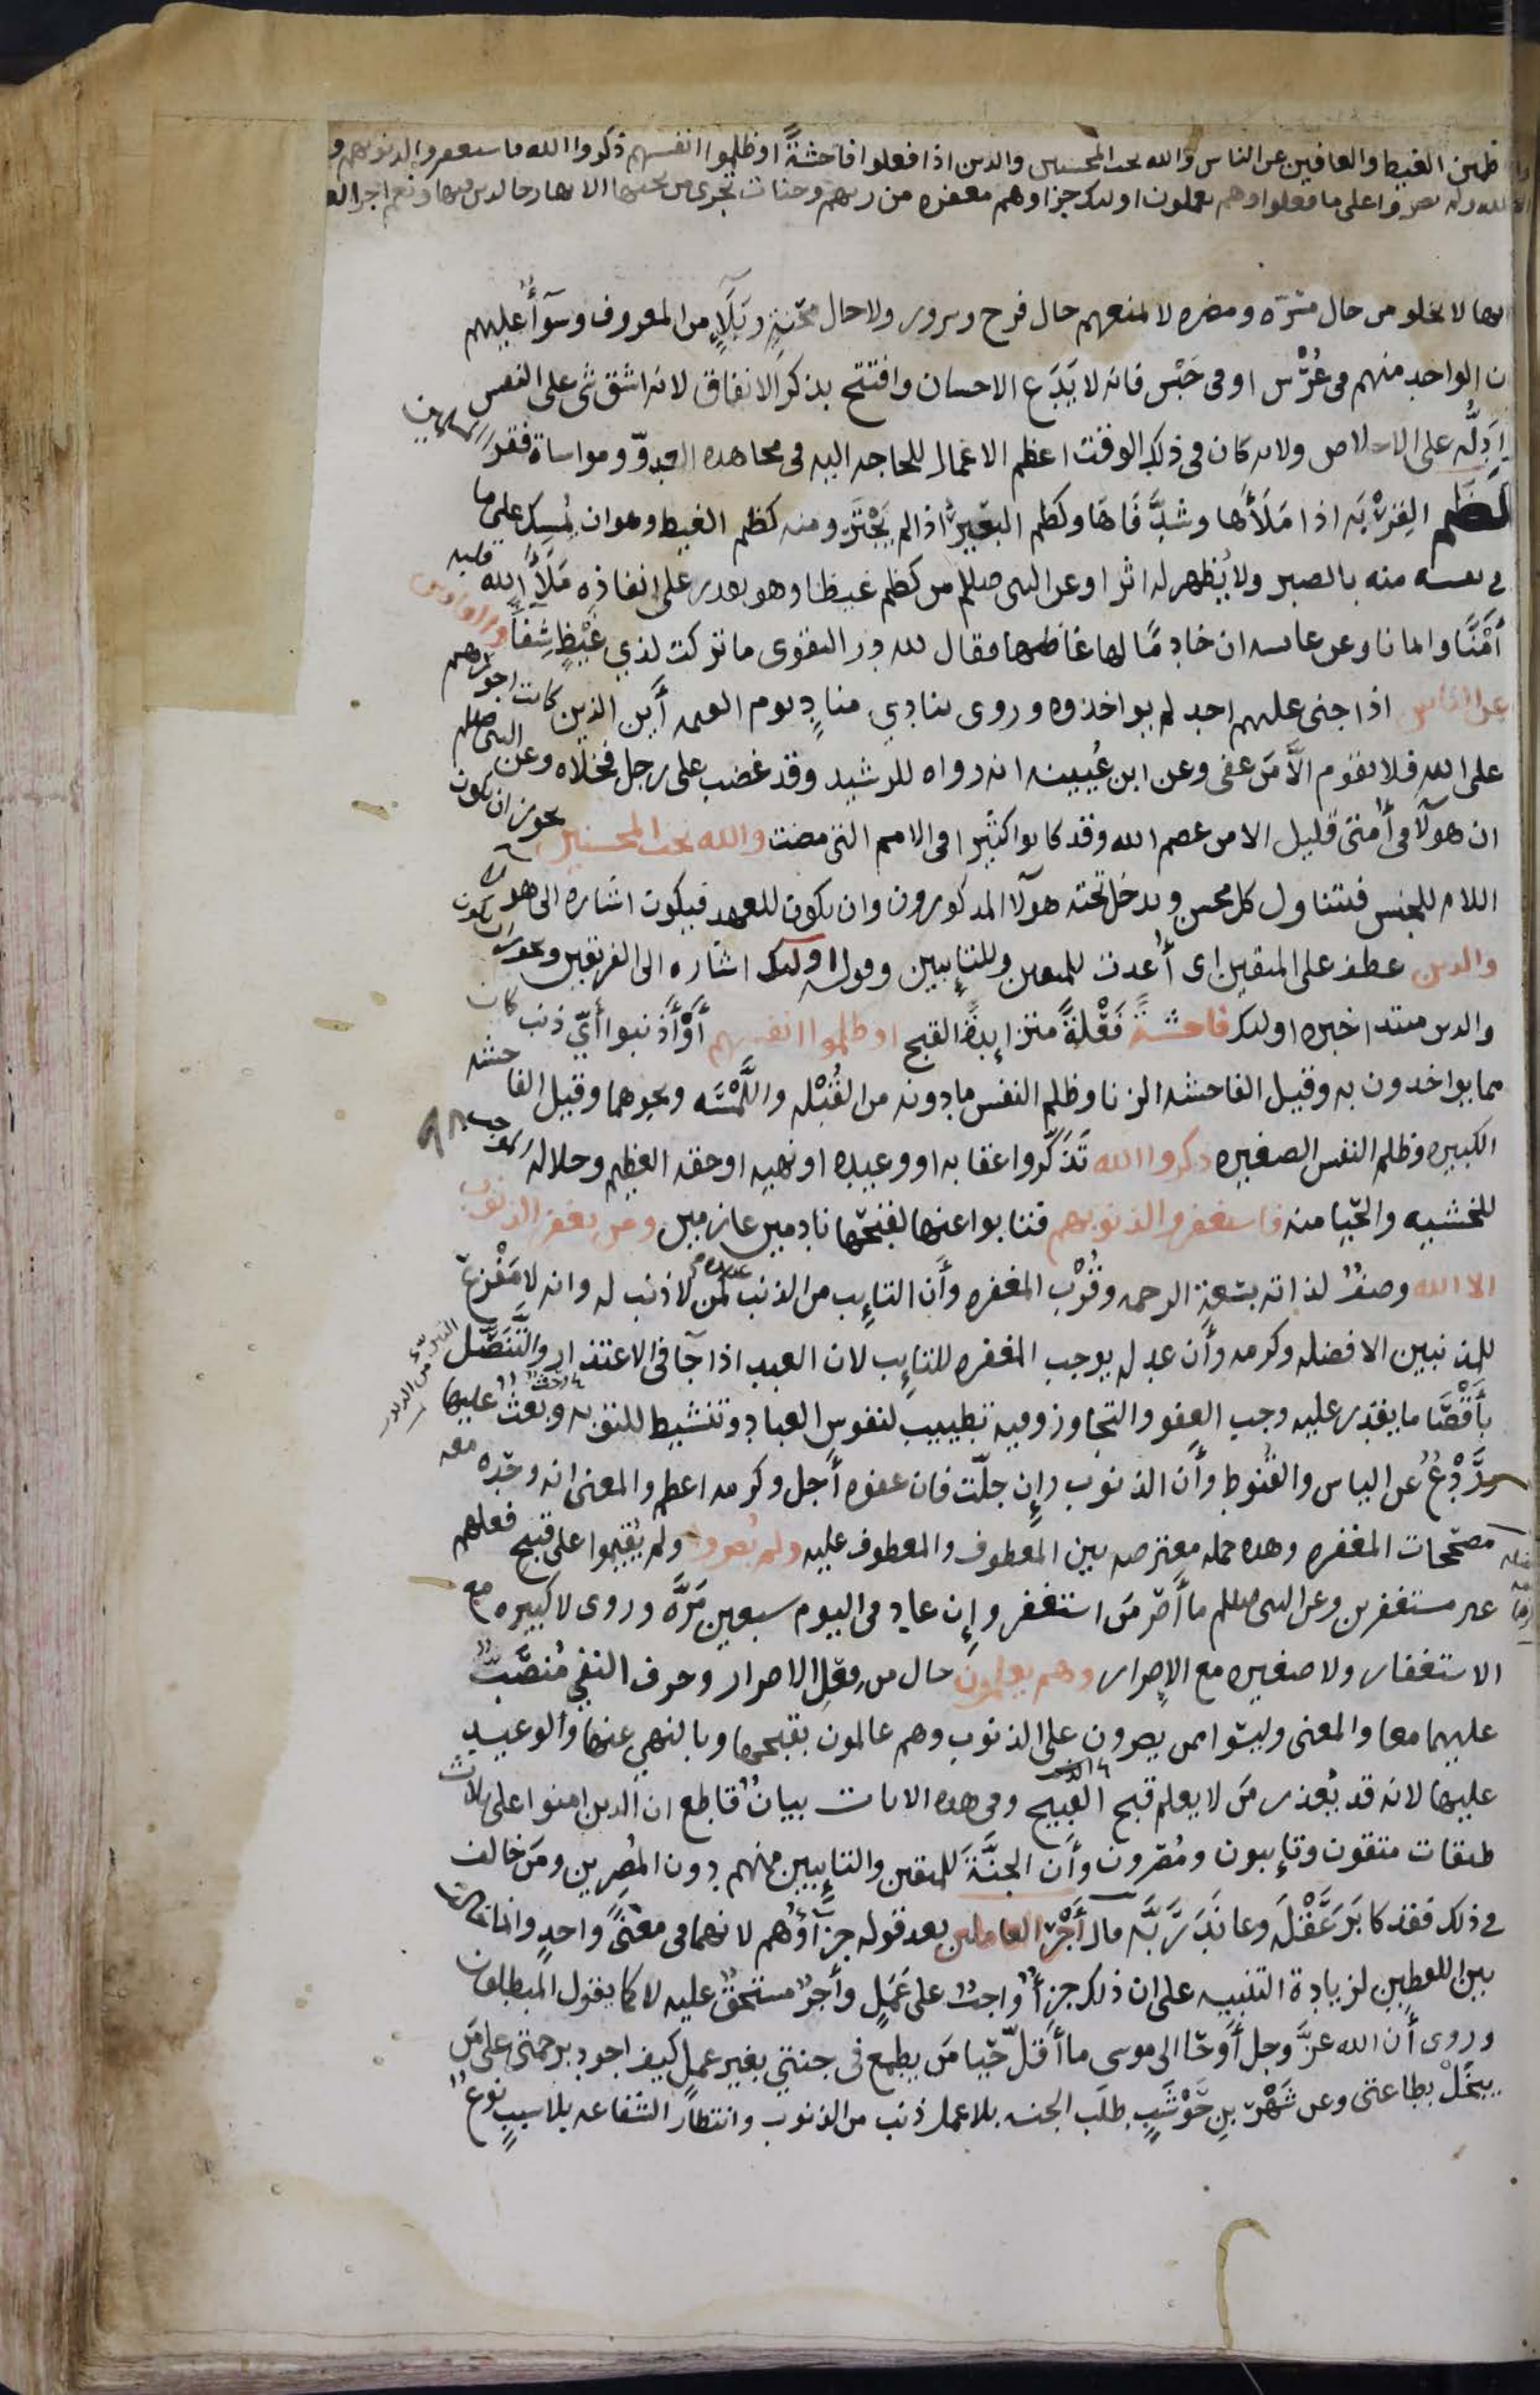 ظمين الغيظ والعافين عن الناس والله يحب المحسنين والذين اذا فعلوا فاحشةً او ظلموا انفسهم ذكروا الله فاستغفروا لذنوبهم و
الله ولم يصروا على ما فعلوا وهم يعلمون اولئك جزاوهم مغفره من ربهم وجنات تجرى من تحتها الانهار خالدين فيها ونعم اجر العا
انها لا تخلو من حال مسّره ومضره لا تمنعهم حال فرح وسرور ولا حال محنةٍ وبَلَاٍ من المعروف وسوآءٌ عليهم
ن الواحد منهم فى عُرْسٍ او فى حَبْس فانه لا يَدَع الاحسان وافتتح بذكر الانفاق لانه اشق شى على النفس
وادلّه على الاخلاص ولانه كان فى ذلك الوقت اعظم الاعمال للحاجه اليه فى مجاهده العدوّ ومواساة فقرا المسلمين
كَظَم القِرْبَه اذا مَلَأها وشدَّ فَاهَا وكظم البعيرُ اذا لم يَجْتَرّ ومنه كظم الغيظ وهو ان يُمسِكَ على ما
فى نفسه منه بالصبر ولا يُظهر له اثرا وعن النبى صللم من كظم غيظا وهو يقدر على انفاذه مَلَأ الله قلبه
أَمْنًا وايمانا وعن عايشه ان خادمًا لها غاظها فقال لله در التقوى ما تركت لذي غَيْظٍ شِفَآءً والعافين
عن الناس اذا جنى عليهم احد لم يواخذوه وروى ينادي منادٍ يوم القيمه أَين الذين كانت اجورهم
على الله فلا يقوم الاَّ مَن عفى وعن ابن عُيينه انه رواه للرشيد وقد غضب على رجل فخلّاه وعن النبى صللم
ان هولآ فى أمتى قليل الا من عصم الله وقد كانوا كثيرا فى الامم التى مضت والله يحب المحسنين يجوز ان تكون
اللام للجنس فتتناول كل محسن ويدخل تحته هولآ المذكورون وان يكون للعهد فيكون اشاره الى هولا
والذين عطف على المتقين اى أُعدت للمتقين وللتايبين وقوله اولئك اشاره الى الفريقين ويجوز ان يكون
والذين مبتدا خبره اولئك فاحشةً فَعْلةً متزايدةَ القبح او ظلموا انفسهم أَوْ أَذنبوا أَيَّ ذنب كان
مما يواخذون به وقيل الفاحشه الزنا وظلم النفس ما دونه من القُبْله واللَّمْسَه ونحوهما وقيل الفاحشه
الكبيره وظلم النفس الصغيره ذكروا الله تَذكّروا عقابه او وعيده او نهيه او حقه العظيم وجلاله الموجب
للخشيه والحيا منه فاستغفروا لذنوبهم فتابوا عنها لقبحها نادمين عازمين ومن يغفر الذنوب
الا الله وصفٌ لذاته بسَعةِ الرحمه وقُرْب المغفره وأَن التايب من الذنب عنده كمن لا ذنب له وانه لا مَفْزعَ
للمذنبين الا فضله وكرمه وأَن عدله يوجب المغفره للتايب لان العبد اذا جآ فى الاعتذار والتَّنَصُّل
بأَقْصَا ما يقدر عليه وجب العفو والتجاوز وفيه تطييب لنفوس العباد وتنشيط للتوبه وبَعْثٌ عليها
ورَدْعٌ عن الياس والقُنُوط وأَن الذنوب وإِن جلّت فان عفوه أَجل وكرمه اعظم والمعنى انه وحْده معه
مصحّحات المغفره وهذه جمله معترضه بين المعطوف والمعطوف عليه ولم يصروا ولم يُقيموا على قبيح فعلهم
غير مستغفرين وعن النبى صللم ما أَصرّ مَن استغفر وإِن عاد فى اليوم سبعين مَرَّه وروى لا كبيره مع
الاستغفار ولا صغيره مع الإِصرار وهم يعلمون حال من فِعْلِ الاصرار وحرف النفي مُنصَبٌّ
عليهما معا والمعنى وليسُوا ممن يصرون على الذنوب وهم عالمون بقبحها وبالنهي عنها وَالوعيد
عليها لانه قد يُعذر مَن لا يعلم قبح القبيح وفى هذه الايات بيانٌ قاطع ان الذين امنوا على ثلاث
طبقات متقون وتايبون ومُصّرون وأَن الجنَّةَ للمتقين والتايبين منهم دون المُصِرين ومَن خالف
فى ذلك فقد كابَرَ عَقْلَه وعانَدَ رَبَّه قال أَجْرُ العاملين بعد قوله جزآؤُهم لانهما فى معنًى واحدٍ وانما خالف
بين اللفظين لزيادة التنبيه على ان ذلك جزآءٌ واجبٌ على عَمَلٍ وأَجرٌ مستحَقٌّ عليه لا كما يقول المبطلون
وروى أَن الله عزَّ وجل أَوحَا الى موسى ما أَقلَّ حَيا مَن يطمع فى جنتي بغير عملٍ كيف اجود برحمتى على مَن
يبخَلْ بطاعتى وعن شَهْرِ بنِ حَوْشَبٍ طلَب الجنه بلا عمل ذنب من الذنوب وانتظار الشفاعه بلا سببٍ نوعٌ